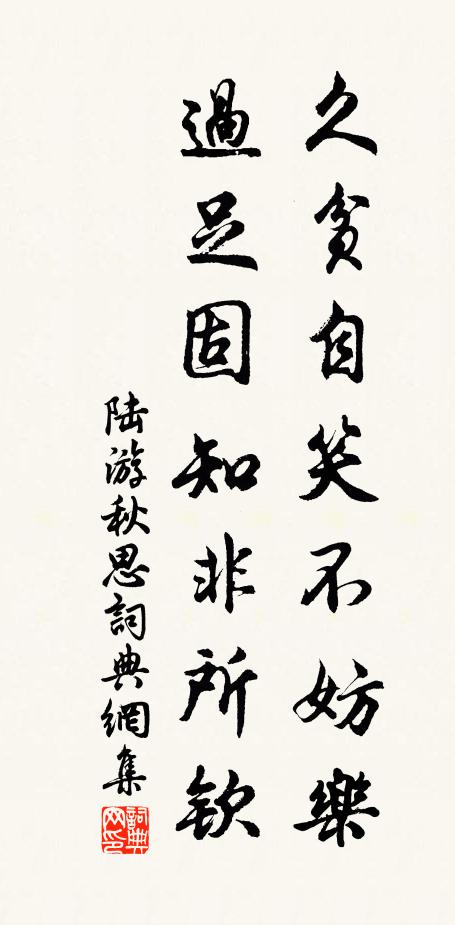 久貧自笑不妨樂
過足固知非所欽
陆游秋思詞典網集
詞典網印